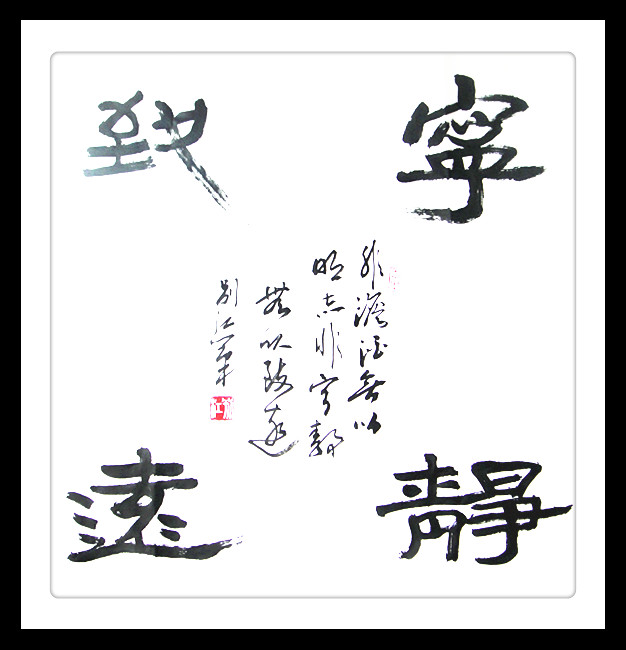 寧靜
致遠
非澹泊無以
明志非宁靜
無以致遠
别江军